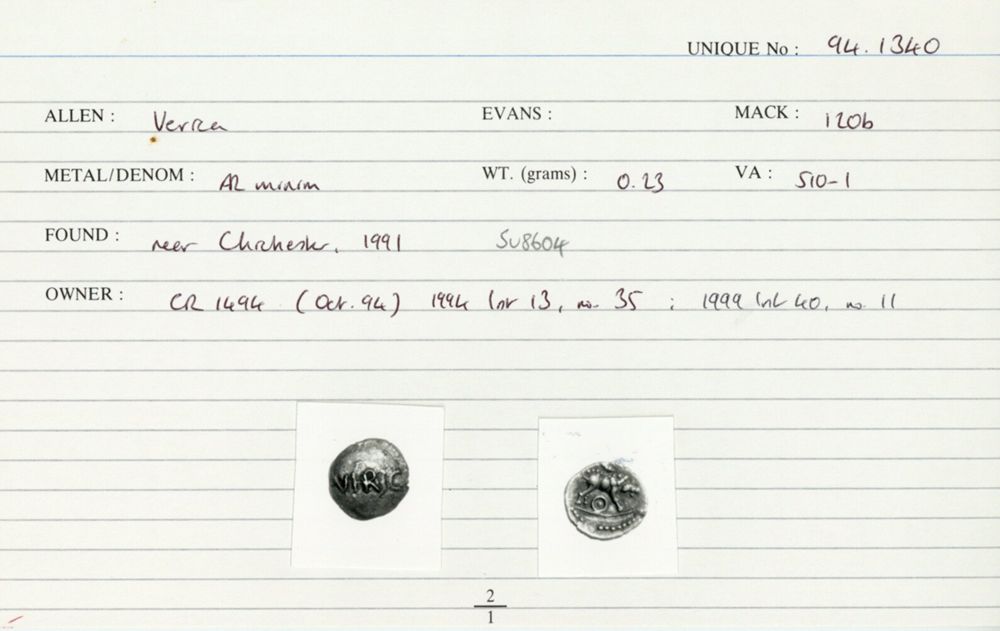 UNIQUE No : 94.1340
ALLEN : Verica EVANS : MACK : 120b
METAL/DENOM : AR minim WT. (grams) : 0.23 VA : 510-1
FOUND : near Chichester, 1991 SU8604
OWNER : CR 1494 (Oct. 94) 1994 list 13, no. 35 ; 1999 list 40, no. 11
VIRIC
2
1